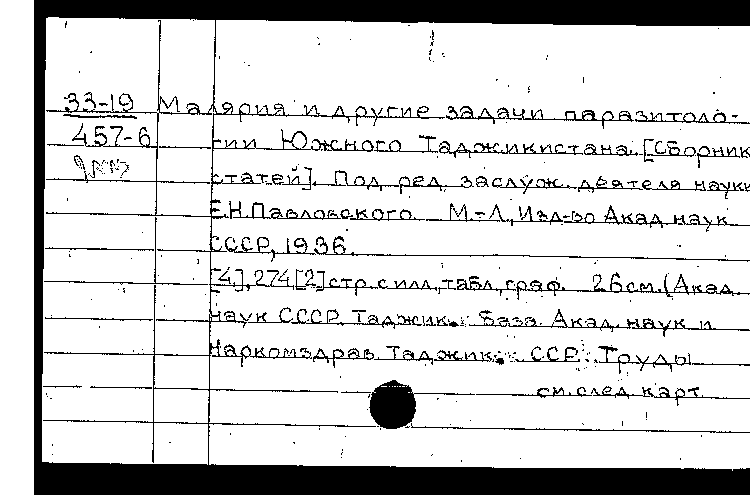 33-19
457-6
Малярия и другие задачи паразитоло-
гии Южного Таджикистана. [Сборник
статей]. Под ред. заслуж. деятеля науки
Е.Н.Павловского. М.-Л., Изд-во Акад. наук
СССР, 1936.
[4], 274, [2] стр. с илл., табл., граф. 26 см. (Акад.
наук СССР. Таджик. база. Акад. наук и
Наркомздрав Таджик. ССР. Труды
см. след. карт.